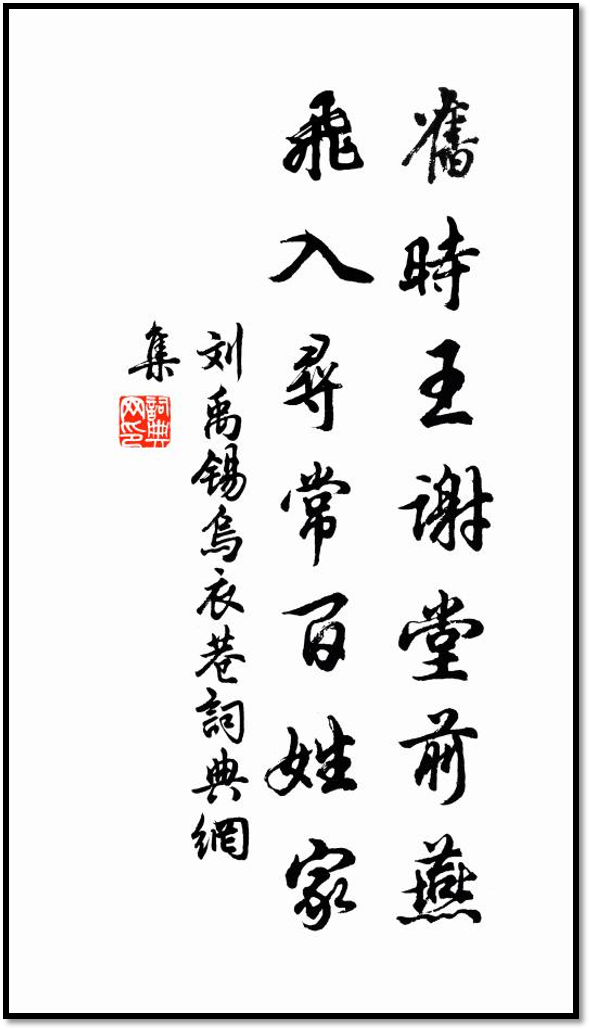 舊時王謝堂前燕
飛入尋常百姓家
刘禹锡烏衣巷詞典網
集
詞典
网印